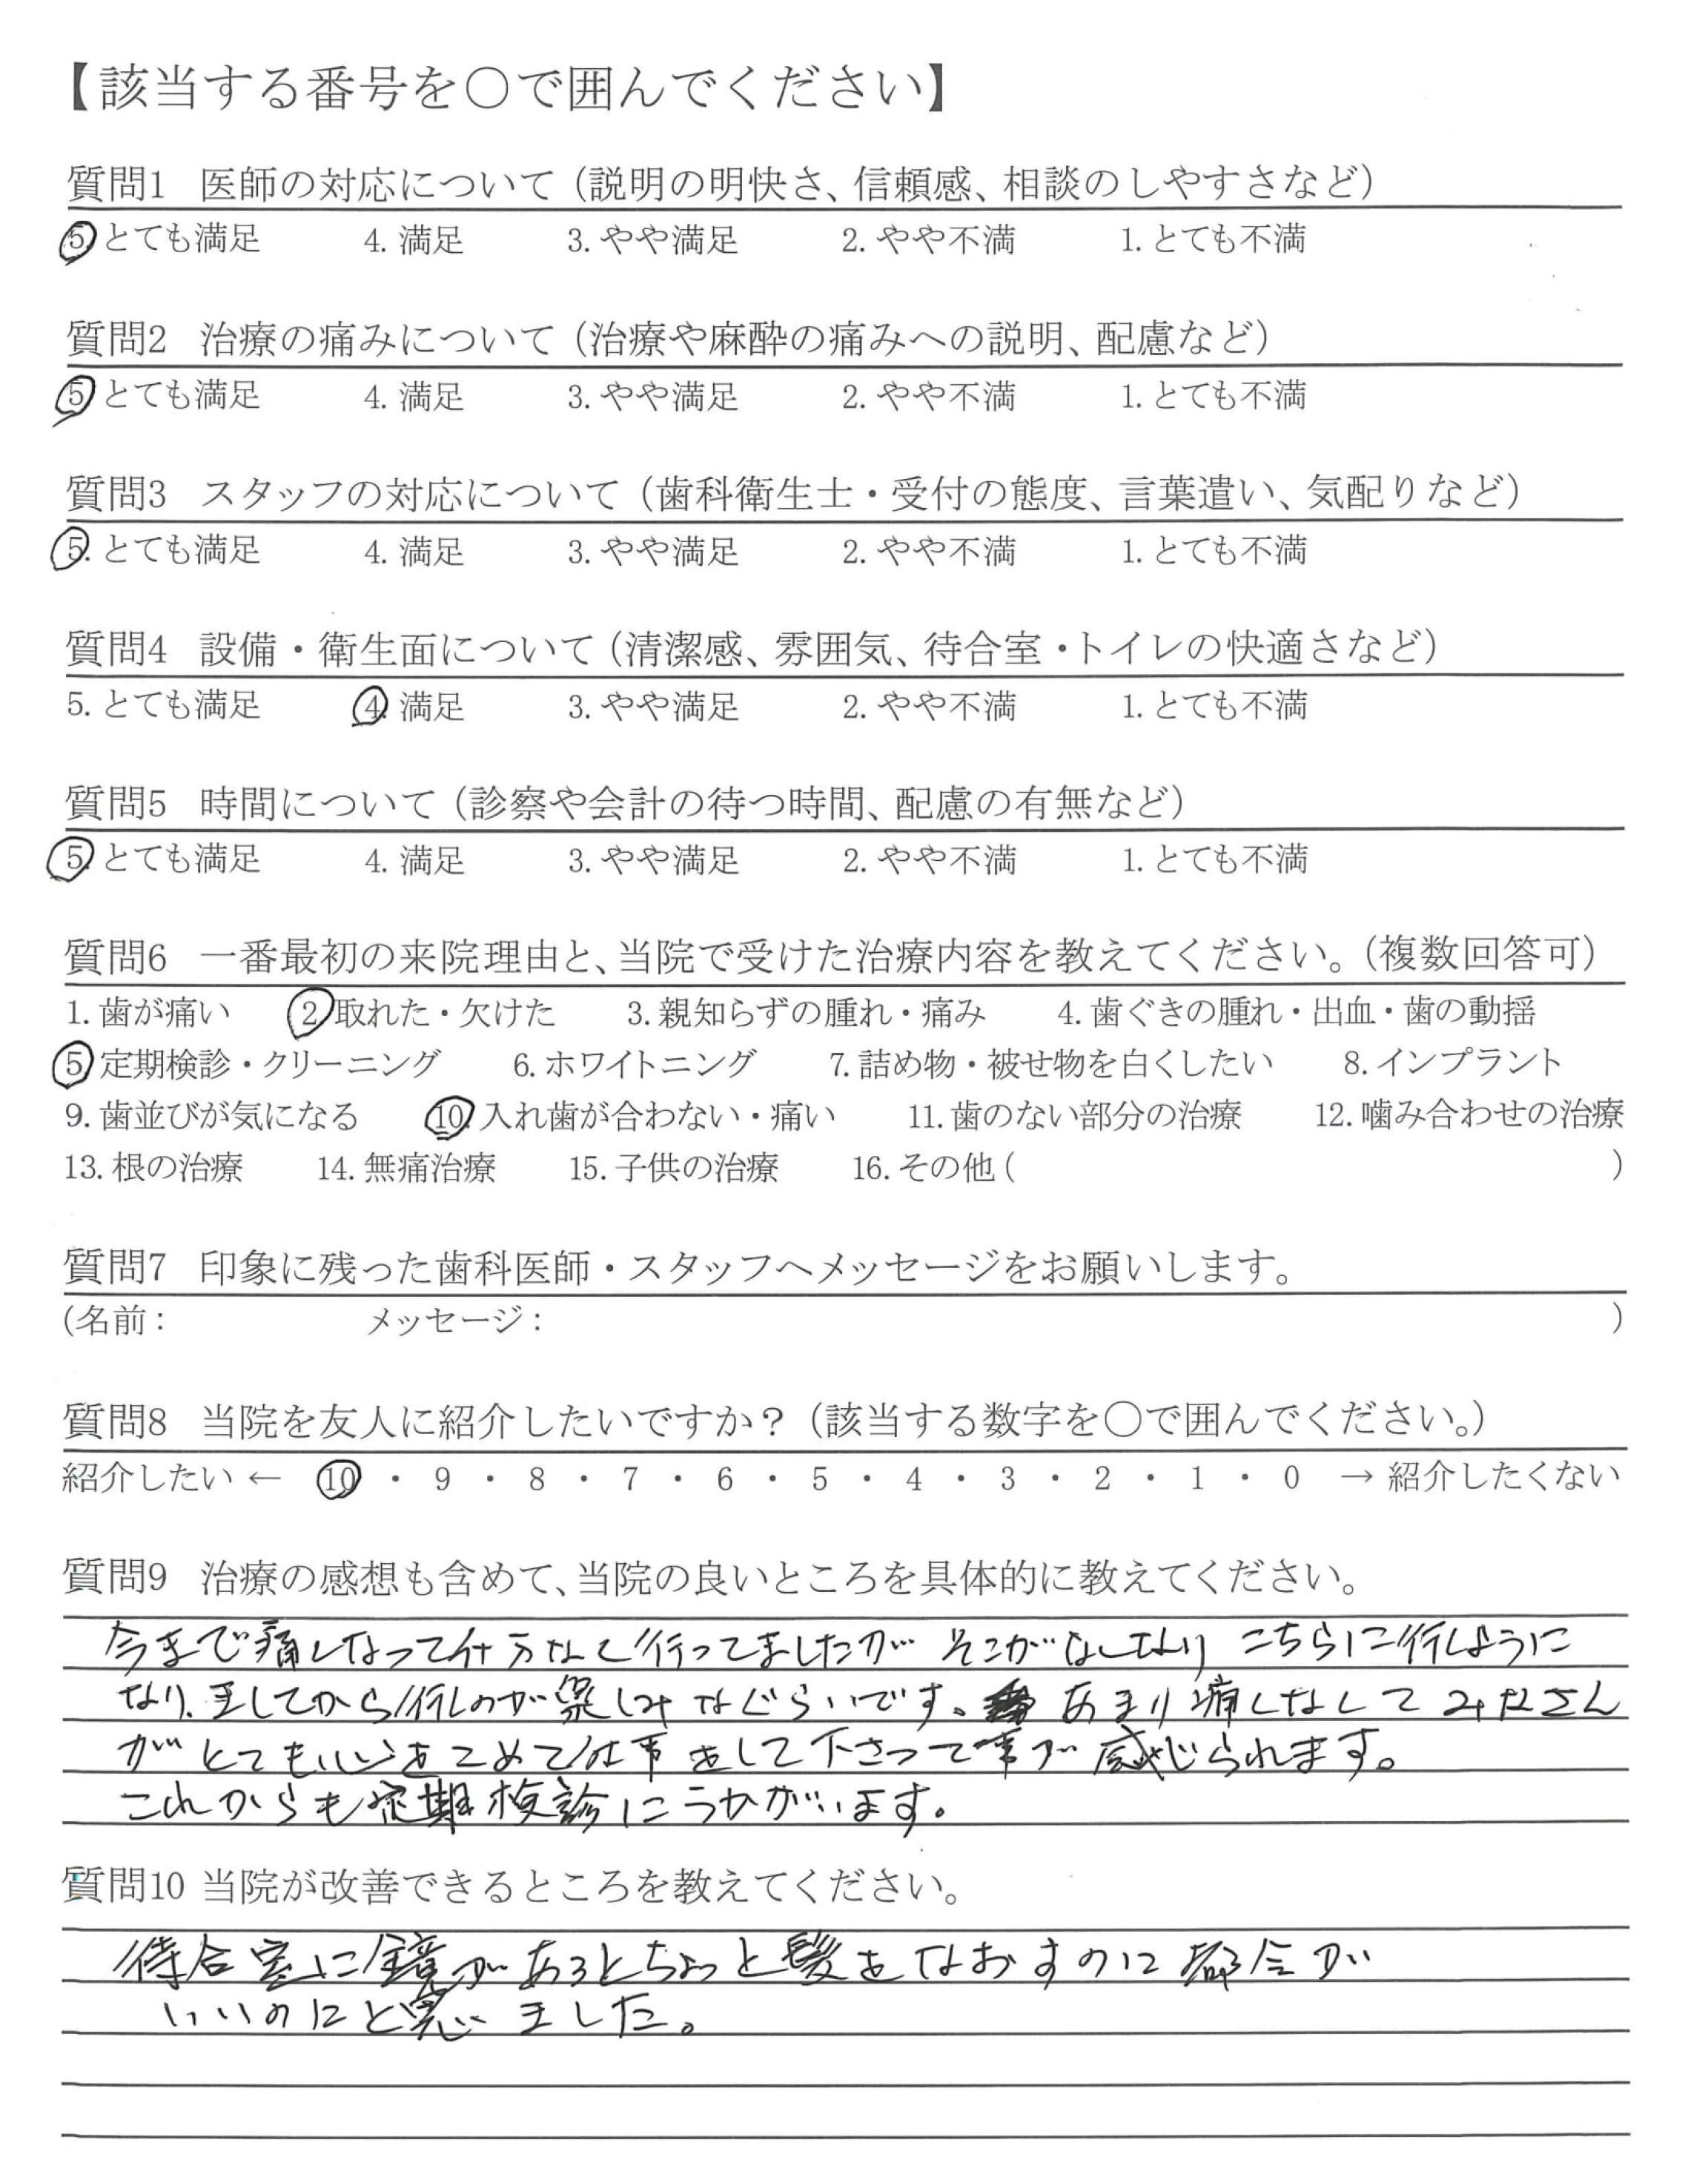 【該当する番号を○で囲んでください】
質問1 医師の対応について（説明の明快さ、信頼感、相談のしやすさなど）
5. とても満足 4. 満足 3. やや満足 2. やや不満 1. とても不満
質問2 治療の痛みについて（治療や麻酔の痛みへの説明、配慮など）
5. とても満足 4. 満足 3. やや満足 2. やや不満 1. とても不満
質問3 スタッフの対応について（歯科衛生士・受付の態度、言葉遣い、気配りなど）
5. とても満足 4. 満足 3. やや満足 2. やや不満 1. とても不満
質問4 設備・衛生面について（清潔感、雰囲気、待合室・トイレの快適さなど）
5. とても満足 4. 満足 3. やや満足 2. やや不満 1. とても不満
質問5 時間について（診察や会計の待つ時間、配慮の有無など）
5. とても満足 4. 満足 3. やや満足 2. やや不満 1. とても不満
質問6 一番最初の来院理由と、当院で受けた治療内容を教えてください。（複数回答可）
1. 歯が痛い 2. 取れた・欠けた 3. 親知らずの腫れ・痛み 4. 歯ぐきの腫れ・出血・歯の動揺
5. 定期検診・クリーニング 6. ホワイトニング 7. 詰め物・被せ物を白くしたい 8. インプラント
9. 歯並びが気になる 10. 入れ歯が合わない・痛い 11. 歯のない部分の治療 12. 噛み合わせの治療
13. 根の治療 14. 無痛治療 15. 子供の治療 16. その他 ( )
質問7 印象に残った歯科医師・スタッフへメッセージをお願いします。
(名前： メッセージ： )
質問8 当院を友人に紹介したいですか？（該当する数字を○で囲んでください。）
紹介したい ← 10 ・ 9 ・ 8 ・ 7 ・ 6 ・ 5 ・ 4 ・ 3 ・ 2 ・ 1 ・ 0 → 紹介したくない
質問9 治療の感想も含めて、当院の良いところを具体的に教えてください。
今まで痛くなって仕方なく行ってましたが そこがなくなり こちらに行くように
なりましてから行くのが楽しみなぐらいです。あまり痛くなくてみなさん
がとても心をこめて仕事をして下さって事が感じられます。
これからも定期検診にうかがいます。
質問10 当院が改善できるところを教えてください。
待合室に鏡があるとちょっと髪をなおすのに都合が
いいのにと思いました。